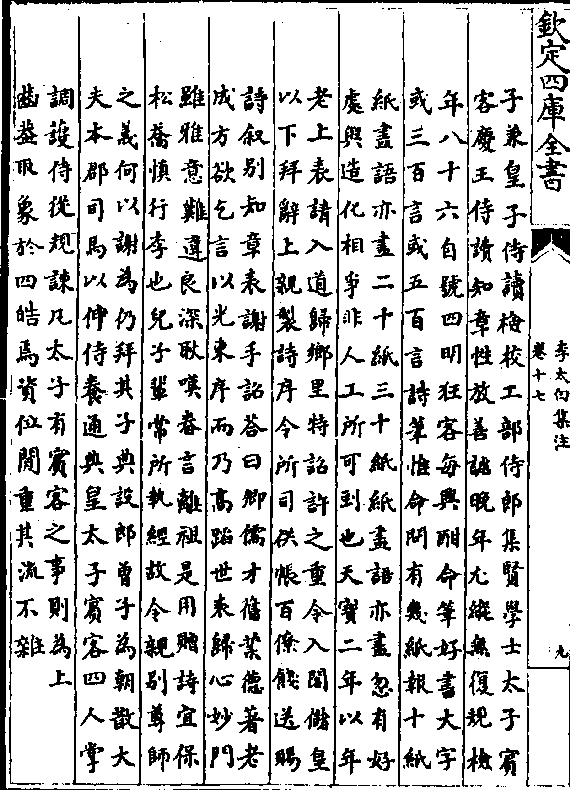 欽定四庫全書
李太白集注
卷十七
九
子兼皇子侍讀檢校工部侍郎集賢學士太子賓
客慶王侍讀知章性放善謔晚年尤縱無復規檢
年八十六自號四明狂客每興酣命筆好書大字
或三百言或五百言詩筆惟命問有幾紙報十紙
紙盡語亦盡二十紙三十紙紙盡語亦盡忽有好
處與造化相爭非人工所可到也天寶二年以年
老上表請入道歸鄉里特詔許之重令入閣儲皇
以下拜辭上親製詩序令所司供帳百僚餞送賜
詩叙别知章表謝手詔答曰卿儒才舊業德著老
成方欲乞言以光東序而乃高蹈世表歸心妙門
雖雅意難違良深耿嘆眷言離祖是用贈詩宜保
松喬慎行李也兒子輩常所執經故令親别尊師
之義何以謝為仍拜其子典設郎曾子為朝散大
夫本郡司馬以伸侍養通典皇太子賓客四人掌
調護侍從規諫凡太子有賓客之事則為上
齒蓋取象於四皓焉資位閒重其流不雜